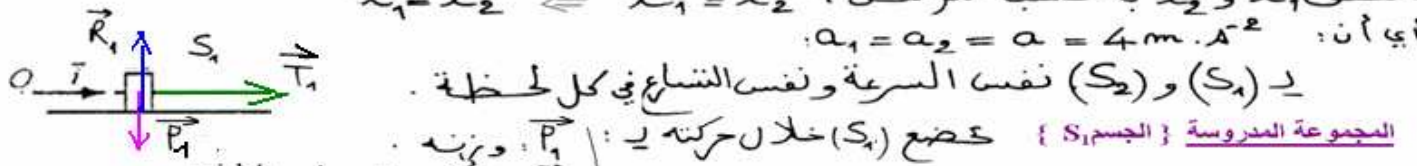 x₁ = x₂ ⇐ x₁ = x₂
أي أن: a₁ = a₂ = a = 4 m . s⁻² .
لـ (S₁) و (S₂) نفس السرعة ونفس التسارع في كل لحظة .
المجموعة المدروسة { الجسم S₁ } تخضع (S₁) خلال حركته لـ : \ P₁ : وزنه .
R₁ S₁ T₁
O i
P₁